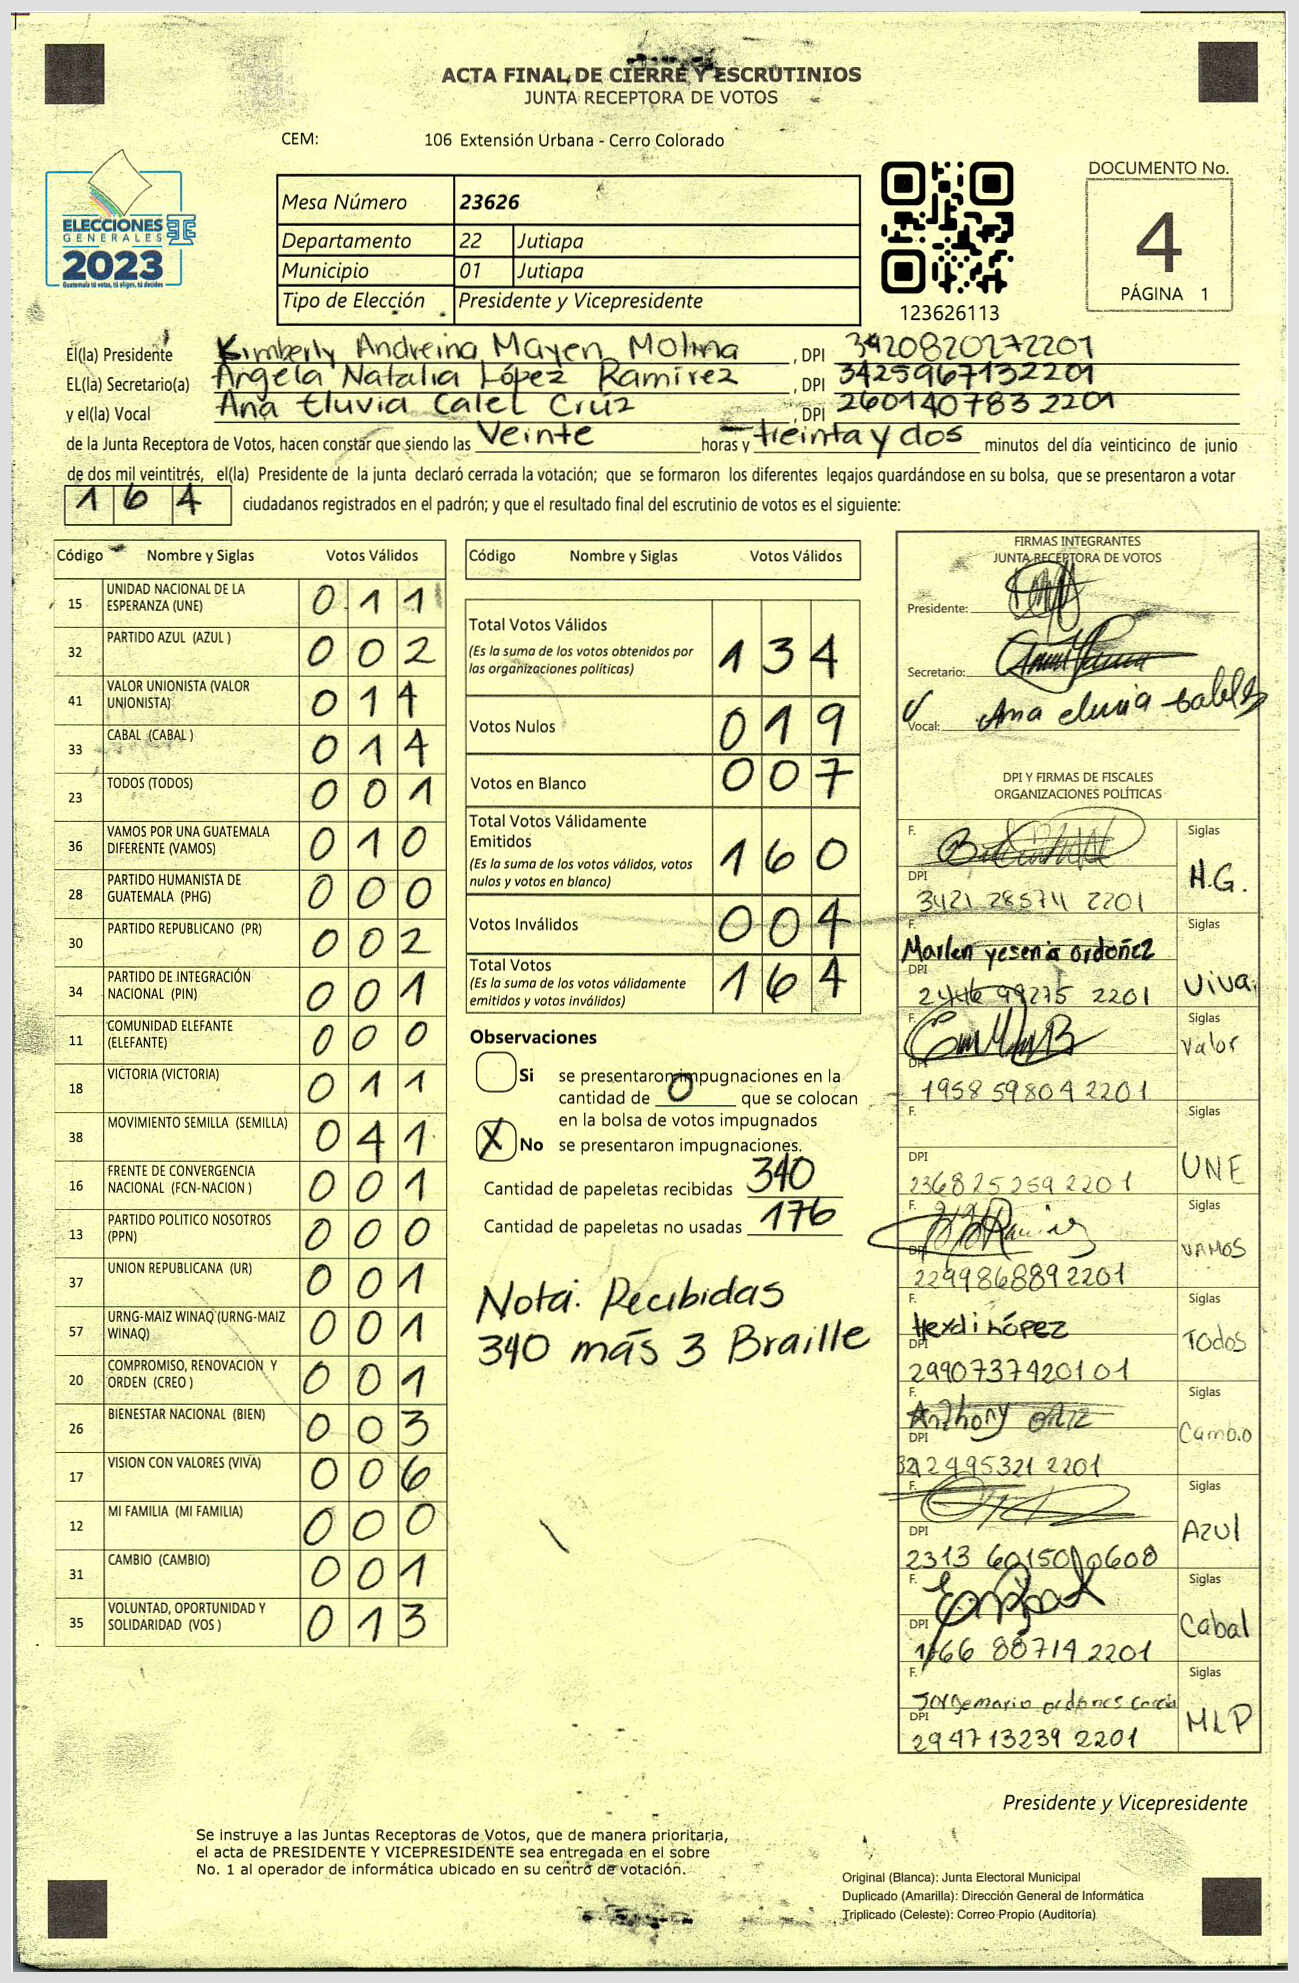 ACTA FINAL DE CIERRE Y ESCRUTINIOS
JUNTA RECEPTORA DE VOTOS
CEM: 106 Extensión Urbana - Cerro Colorado
ELECCIONES
GENERALES
2023
Guatemala tú votas, tú eliges, tú decides
Mesa Número 23626
Departamento 22 Jutiapa
Municipio 01 Jutiapa
Tipo de Elección Presidente y Vicepresidente
123626113
DOCUMENTO No.
4
PÁGINA 1
El(la) Presidente Kimberly Andreina Mayen Molina , DPI 3420820272201
EL(la) Secretario(a) Angela Natalia López Ramírez , DPI 3425967132201
y el(la) Vocal Ana Eluvia Calel Cruz , DPI 260140783 2201
de la Junta Receptora de Votos, hacen constar que siendo las Veinte horas y treinta y dos minutos del día veinticinco de junio
de dos mil veintitrés, el(la) Presidente de la junta declaró cerrada la votación; que se formaron los diferentes legajos guardándose en su bolsa, que se presentaron a votar
164 ciudadanos registrados en el padrón; y que el resultado final del escrutinio de votos es el siguiente:
Código Nombre y Siglas Votos Válidos
15 UNIDAD NACIONAL DE LA ESPERANZA (UNE) 011
32 PARTIDO AZUL (AZUL ) 002
41 VALOR UNIONISTA (VALOR UNIONISTA) 014
33 CABAL (CABAL ) 014
23 TODOS (TODOS) 001
36 VAMOS POR UNA GUATEMALA DIFERENTE (VAMOS) 010
28 PARTIDO HUMANISTA DE GUATEMALA (PHG) 000
30 PARTIDO REPUBLICANO (PR) 002
34 PARTIDO DE INTEGRACIÓN NACIONAL (PIN) 001
11 COMUNIDAD ELEFANTE (ELEFANTE) 000
18 VICTORIA (VICTORIA) 011
38 MOVIMIENTO SEMILLA (SEMILLA) 041
16 FRENTE DE CONVERGENCIA NACIONAL (FCN-NACION ) 001
13 PARTIDO POLITICO NOSOTROS (PPN) 000
37 UNION REPUBLICANA (UR) 001
57 URNG-MAIZ WINAQ (URNG-MAIZ WINAQ) 001
20 COMPROMISO, RENOVACION Y ORDEN (CREO ) 001
26 BIENESTAR NACIONAL (BIEN) 003
17 VISION CON VALORES (VIVA) 006
12 MI FAMILIA (MI FAMILIA) 000
31 CAMBIO (CAMBIO) 001
35 VOLUNTAD, OPORTUNIDAD Y SOLIDARIDAD (VOS ) 013
Código Nombre y Siglas Votos Válidos
Total Votos Válidos 134
(Es la suma de los votos obtenidos por
las organizaciones políticas)
Votos Nulos 019
Votos en Blanco 007
Total Votos Válidamente
Emitidos 160
(Es la suma de los votos válidos, votos
nulos y votos en blanco)
Votos Inválidos 004
Total Votos 164
(Es la suma de los votos válidamente
emitidos y votos inválidos)
Observaciones
Si se presentaron impugnaciones en la
cantidad de 0 que se colocan
en la bolsa de votos impugnados
X No se presentaron impugnaciones.
Cantidad de papeletas recibidas 340
Cantidad de papeletas no usadas 176
Nota: Recibidas
340 más 3 Braille
FIRMAS INTEGRANTES
JUNTA RECEPTORA DE VOTOS
Presidente:
Secretario:
Vocal: Ana eluvia
DPI Y FIRMAS DE FISCALES
ORGANIZACIONES POLÍTICAS
F. Siglas
DPI H.G.
3421 28574 2201
F. Marlen yesenia ordoñez Siglas
DPI Viva
2446 99275 2201
F. Siglas
DPI Valor
1958 59804 2201
F. Siglas
DPI UNE
236825259 2201
F. Siglas
DPI VAMOS
229986889 2201
F. Heydi López Siglas
DPI TOdos
2990737420101
F. Anthony Siglas
DPI Cambio
3212495321 2201
F. Siglas
DPI AZUl
2313 60150 0608
F. Siglas
DPI Cabal
1666 88714 2201
F. Jorge mario ordones Garcia Siglas
DPI MLP
294713239 2201
Presidente y Vicepresidente
Se instruye a las Juntas Receptoras de Votos, que de manera prioritaria,
el acta de PRESIDENTE Y VICEPRESIDENTE sea entregada en el sobre
No. 1 al operador de informática ubicado en su centro de votación.
Original (Blanca): Junta Electoral Municipal
Duplicado (Amarilla): Dirección General de Informática
Triplicado (Celeste): Correo Propio (Auditoría)